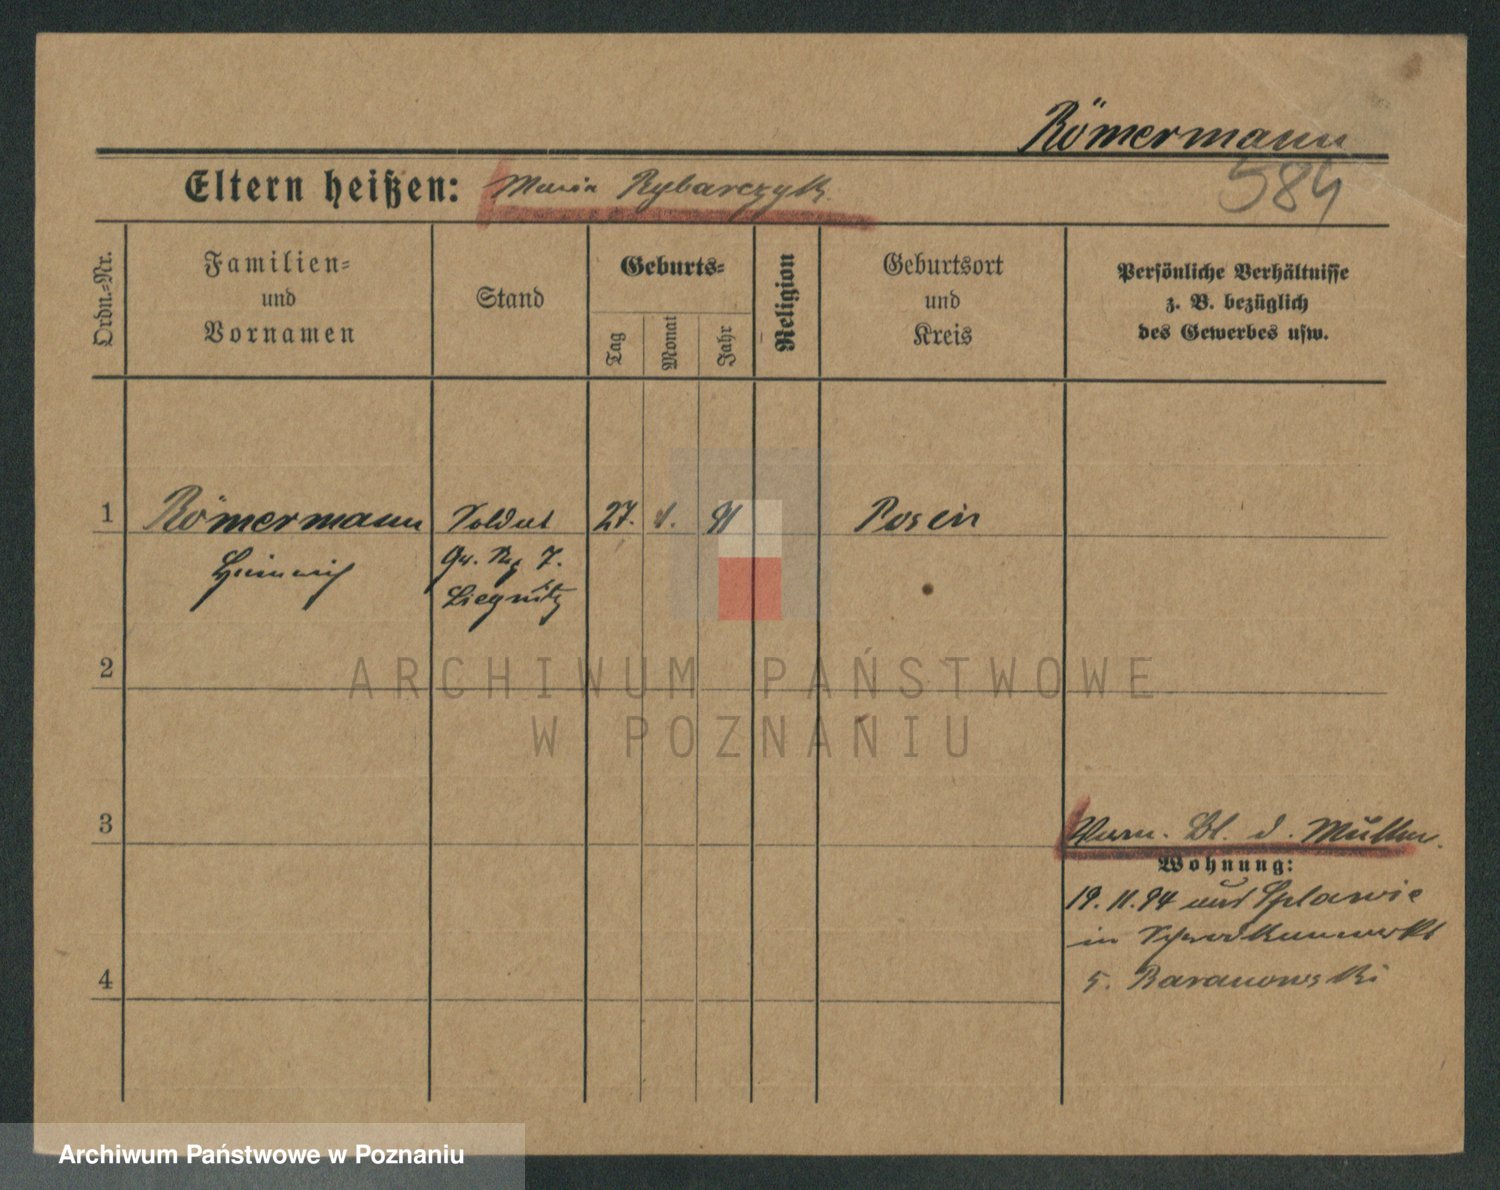 Römermann
584
Eltern heißen: Maria Rybarczyk.
Ordn.-Nr.
Familien-
und
Vornamen
Stand
Geburts-
Tag
Monat
Jahr
Religion
Geburtsort
und
Kreis
Persönliche Verhältnisse
z. B. bezüglich
des Gewerbes usw.
1 Römermann Soldat 27. 91 Posen
Heinrich Gr. Rg 7.
Liegnitz
2
ARCHIWUM PAŃSTWOWE
W POZNANIU
3
Bl. d. Mutter.
Wohnung:
19. 11. 94 aus Splawie
in
4
5. Baranowski
Archiwum Państwowe w Poznaniu